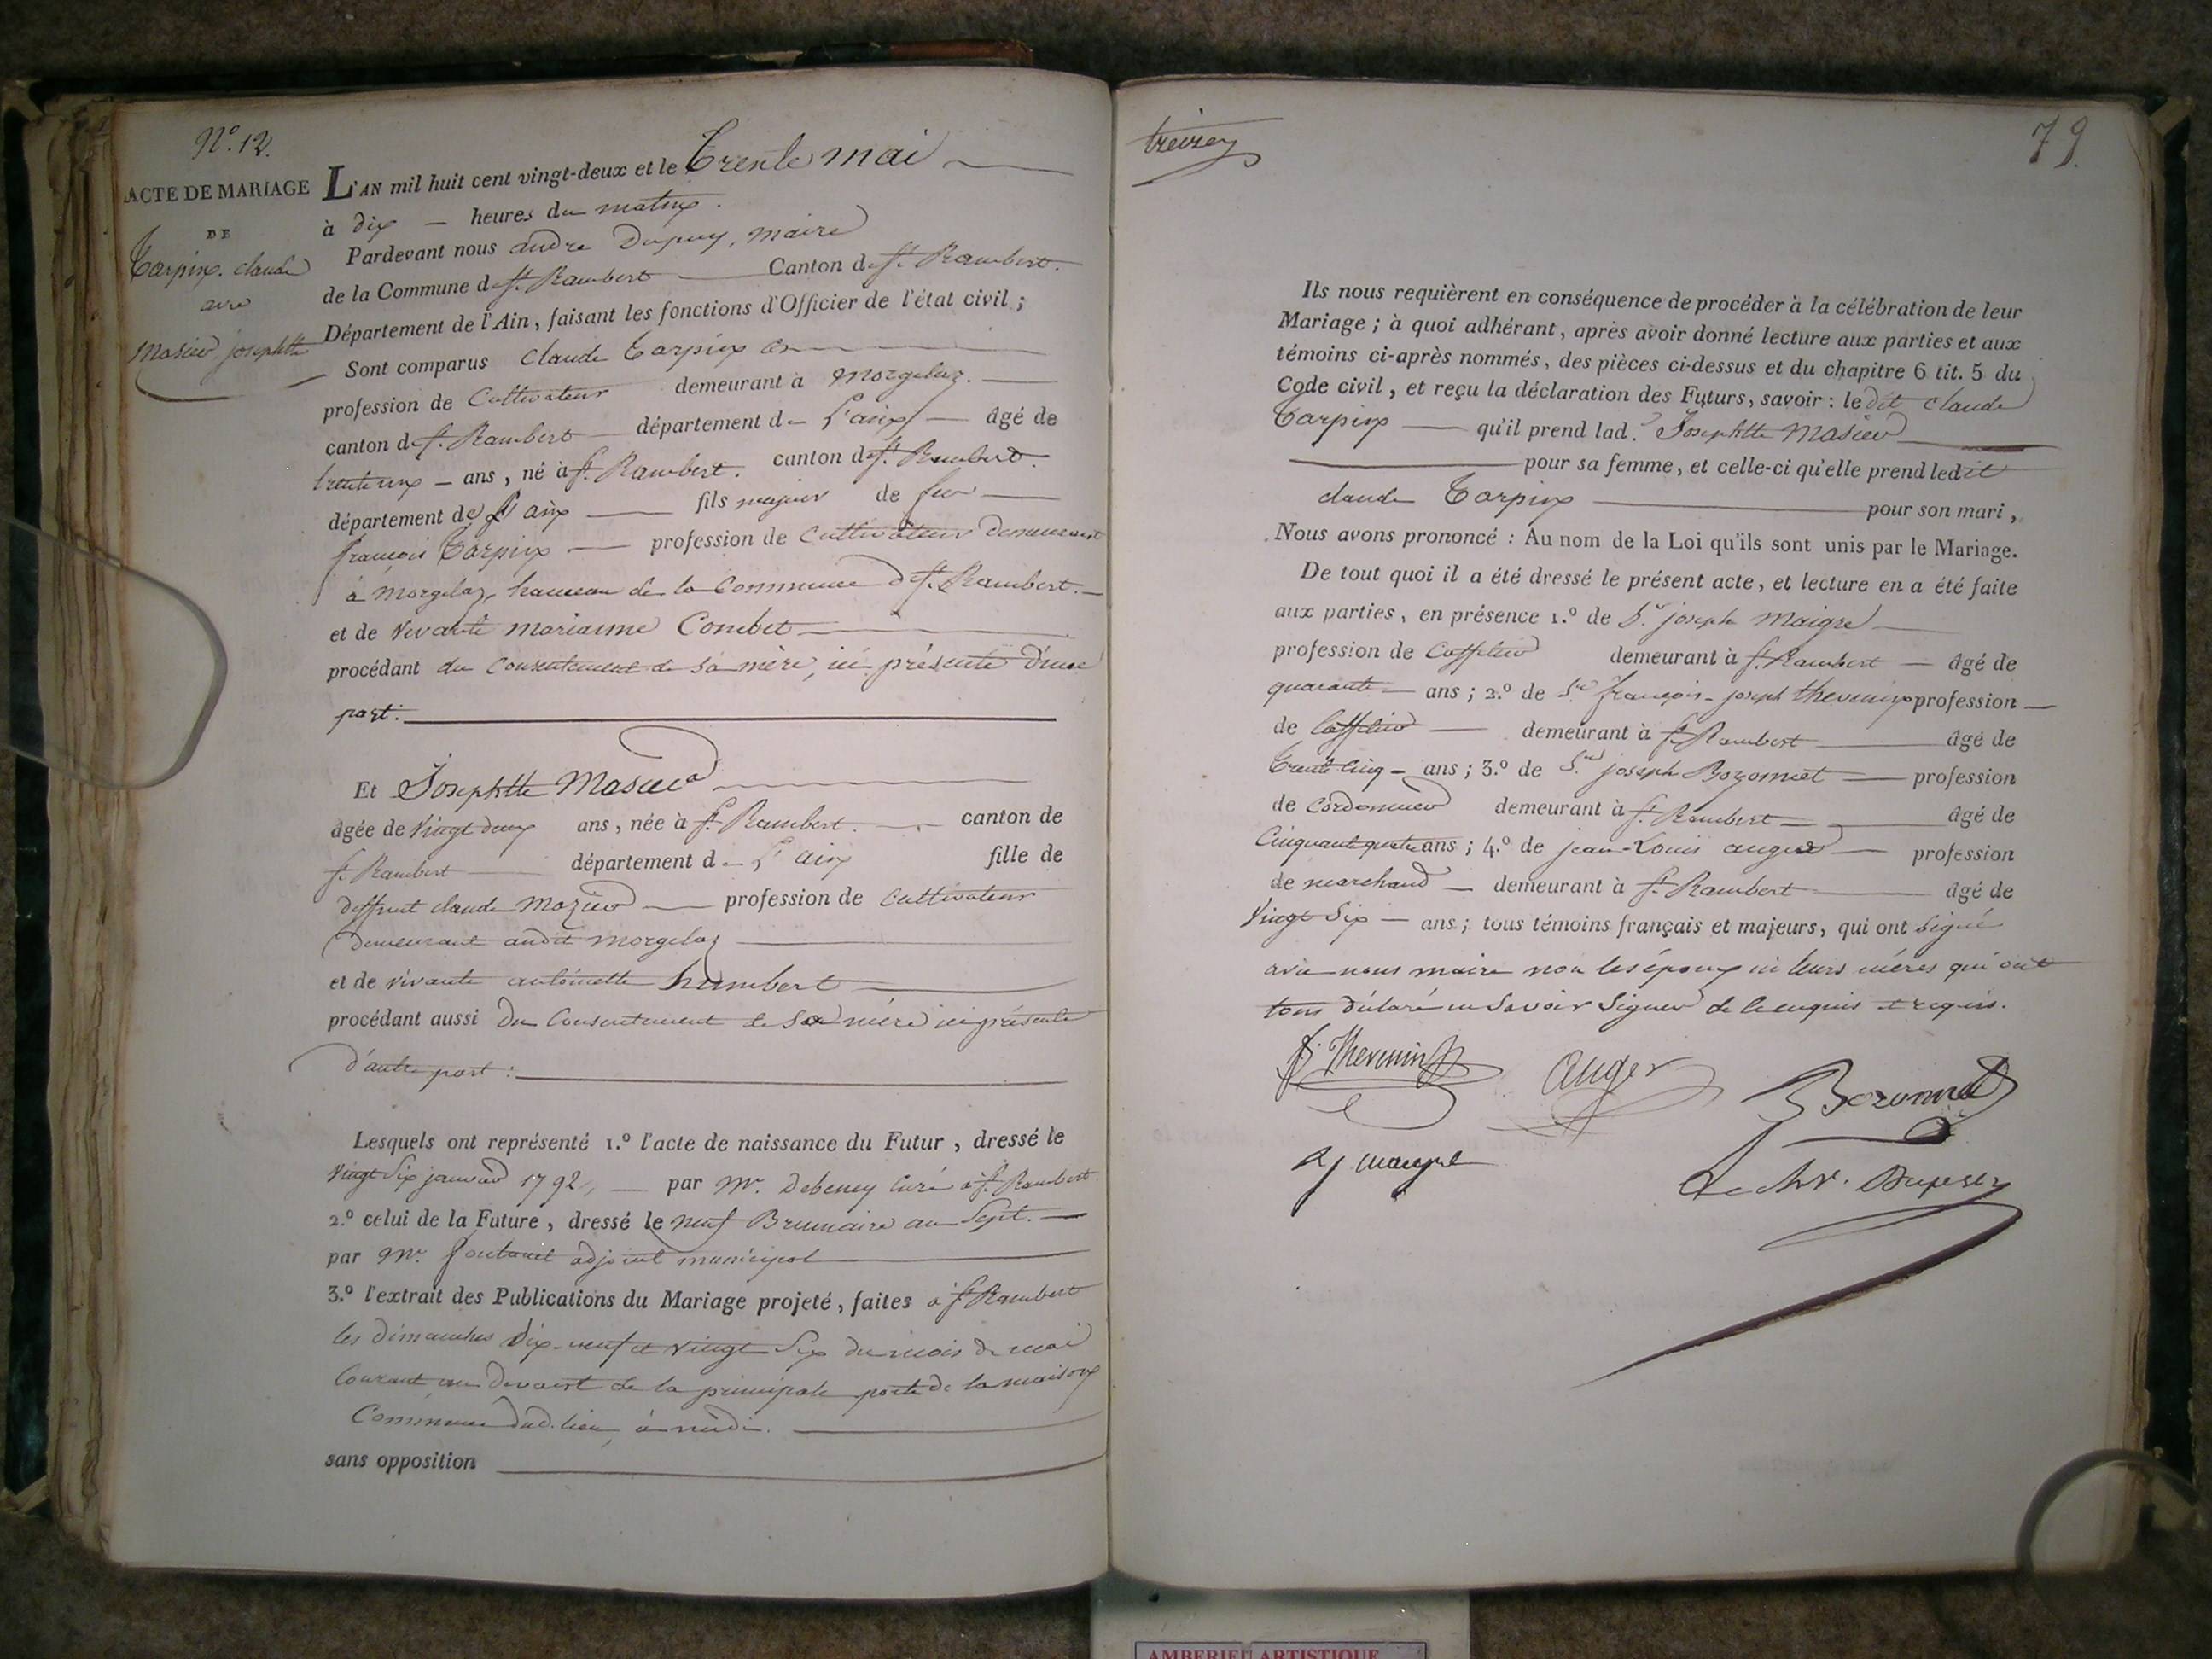 N.º 12.
ACTE DE MARIAGE
DE
Tarpin. claude
avec
Masieu, josephtte
L'AN mil huit cent vingt-deux et le Trente mai
à dix heures du matin.
Pardevant nous andré Dupuy, maire
de la Commune de St. Rambert Canton de St. Rambert.
Département de l'Ain, faisant les fonctions d'Officier de l'état civil;
Sont comparus Claude Tarpin
profession de Cultivateur demeurant à Morgelaz.
canton de St. Rambert département de L'ain âgé de
trente un ans, né à St. Rambert. canton de St. Rambert.
département de L'ain fils majeur de feu
françois Tarpin profession de Cultivateur demeurant
à Morgelaz, hameau de la Commune de St. Rambert.
et de vivante marianne Combet
procédant du Consentement de sa mère, ici présente d'une
part.
Et Josephtte Masieu
âgée de vingt deux ans, née à St. Rambert. canton de
St. Rambert département de L'ain fille de
deffunt claude Mazieu profession de Cultivateur
demeurant audit morgelaz
et de vivante antoinette humbert
procédant aussi du Consentement de sa mère ici présente
d'autre part:
Lesquels ont représenté 1.º l'acte de naissance du Futur, dressé le
vingt six janvier 1792, par Mr. Debeney Curé à St. Rambert.
2.º celui de la Future, dressé le neuf Brumaire an Sept.
par Mr. adjoint municipal
3.º l'extrait des Publications du Mariage projeté, faites à St Rambert
les dimanches dix-neuf et vingt six du mois de mai
Courant au devant de la principale porte de la maison
Commune dud. lieu, à midi.
sans opposition
79.
Ils nous requièrent en conséquence de procéder à la célébration de leur
Mariage; à quoi adhérant, après avoir donné lecture aux parties et aux
témoins ci-après nommés, des pièces ci-dessus et du chapitre 6 tit. 5 du
Code civil, et reçu la déclaration des Futurs, savoir: le dit claude
Tarpin qu'il prend lad. Josephtte Masieu
pour sa femme, et celle-ci qu'elle prend ledit
claude Tarpin pour son mari,
Nous avons prononcé: Au nom de la Loi qu'ils sont unis par le Mariage.
De tout quoi il a été dressé le présent acte, et lecture en a été faite
aux parties, en présence 1.º de Sr joseph Maigre
profession de Caffetier demeurant à St. Rambert âgé de
quarante ans; 2.º de Sr françois-joseph thevenin profession
de Caffetier demeurant à St Rambert âgé de
trente cinq ans; 3.º de Sr joseph Bozonnet profession
de Cordonnier demeurant à St. Rambert âgé de
Cinquante quatre ans; 4.º de jean-Louis auger profession
de marchand demeurant à St. Rambert âgé de
vingt six ans; tous témoins français et majeurs, qui ont signé
avec nous maire non les époux ni leurs mères qui ont
tous déclaré ne savoir signer de ce enquis et requis.
f. Thevenin
Auger
Bozonnet
J maigre
Le chr. Dupuy
AMBERIEU ARTISTIQUE